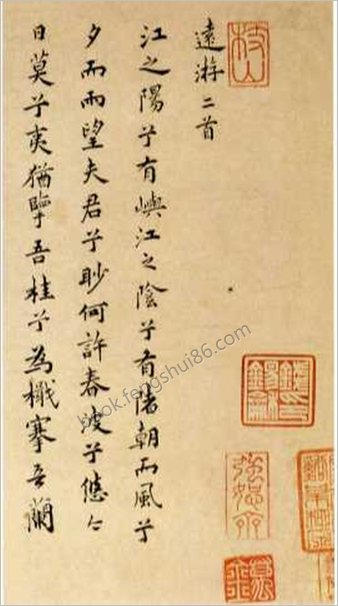 枝山
遠游二首
江之陽兮有嶼江之陰兮有陼朝而風兮
夕而雨望夫君兮眇何許春波兮悠々
日莫兮夷猶吾桂兮為檝搴吾蘭
強恕齋
book.fengshui86.com